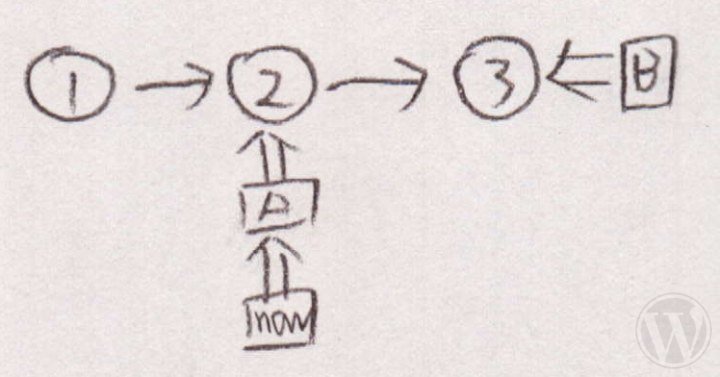 1 2 3 B
A
now